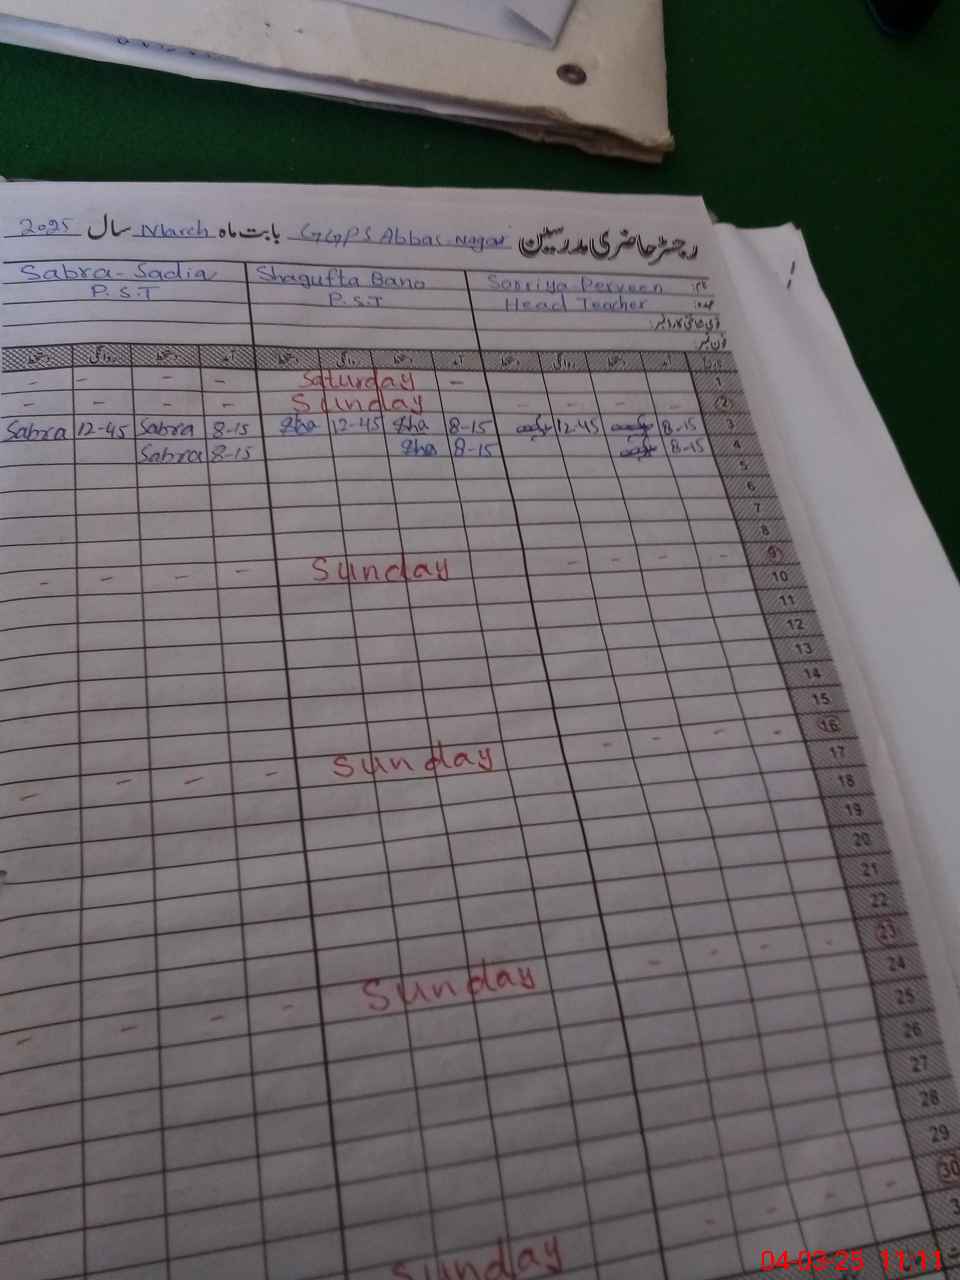 رجسٹر حاضری مدرسین GGPS Abbas Nagar بابت ماہ March سال 2025
نام: Sabriya Perveen Shagufta Bano Sabra-Sadia
عہدہ: Head Teacher P.S.T P.S.T
قومی شناختی کارڈ نمبر:
فون نمبر:
تاریخ آمد دستخط روانگی دستخط آمد دستخط روانگی دستخط آمد دستخط روانگی دستخط
1 - Saturday - - - -
2 - - - - Sunday - - - -
3 8-15 12-45 8-15 Sha 12-45 Sha 8-15 Sabra 12-45 Sabra
4 8-15 8-15 Sha 8-15 Sabra
5
6
7
8
9 - - - - Sunday - - - -
10
11
12
13
14
15
16 - - - - Sunday - - - -
17
18
19
20
21
22
23 - - - - Sunday - - - -
24
25
26
27
28
29
30 - - - - Sunday
3
04-03-25 11:11